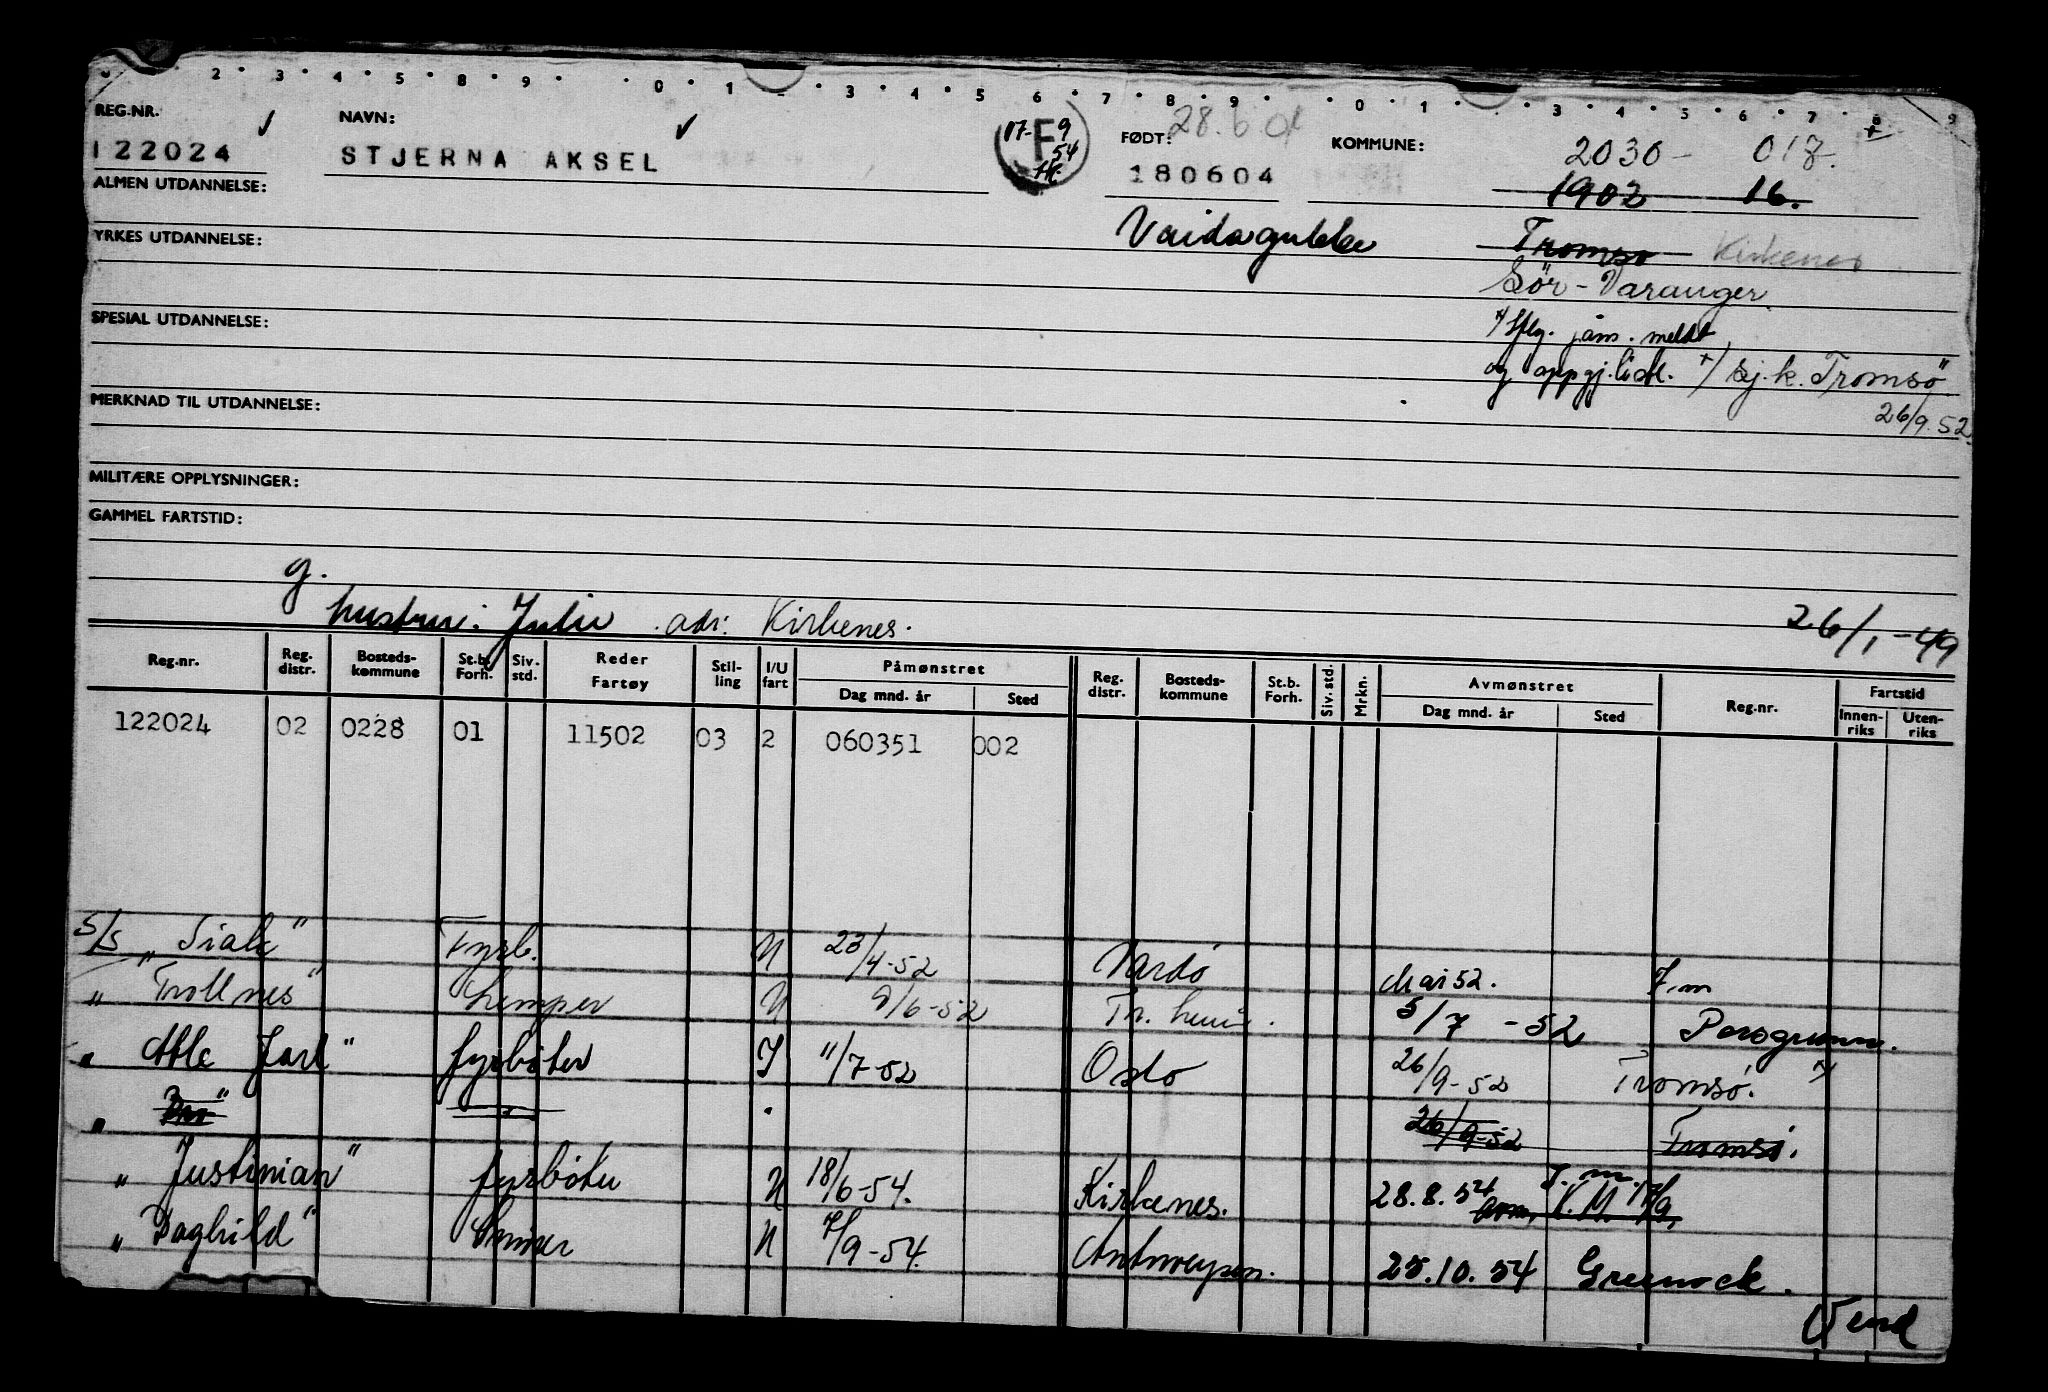 2 • 3 • 4 • 5 • 8 • 9 • • 0 • 1 • 3 • 4 • 5 • 6 • 7 • 8 • 9 • • 0 • 1 • • 3 • 4 • 5 • 6 • 7 • 8 • 9
REG.NR. NAVN: FØDT: 28.6.04 KOMMUNE: 2030 - 018.
122024 STJERNA AKSEL 17- F 9 54 180604 1902 16.
ALMEN UTDANNELSE:
Vaidagubba Tromsø Kirkenes
YRKES UTDANNELSE:
Sör-Varanger
SPESIAL UTDANNELSE:
meldt
og oppgj.list. Sj.k. Tromsø
26/9.52
MERKNAD TIL UTDANNELSE:
MILITÆRE OPPLYSNINGER:
GAMMEL FARTSTID:
g.
hustru: Julie adr: Kirkenes. 26/1-49
Reg.nr. Reg. distr. Bosteds-kommune St.b. Forh. Siv. std. Reder Fartøy Stil-ling I/U fart Påmønstret Dag mnd. år Sted Reg. distr. Bosteds-kommune St.b. Forh. Siv. std. Mrkn. Avmønstret Dag mnd. år Sted Reg.nr. Fartstid Innen-riks Uten-riks
122024 02 0228 01 11502 03 2 060351 002
S/S Fyrb. U 23/4-52 Vardø Mai 52. F.m
" "Trollnes" Lemper U 9/6-52 5/7-52
" Atle Jarl" fyrbøter I 11/7-52 Oslo 26/9-52 Tromsø.
" 26/9-52 Tromsø.
" Justinian" fyrbøter U 18/6-54. Kirkenes. 28.8.54
" Daghild" U 7/9-54. Antwerpen. 25.10.54 Greenock.
Vend